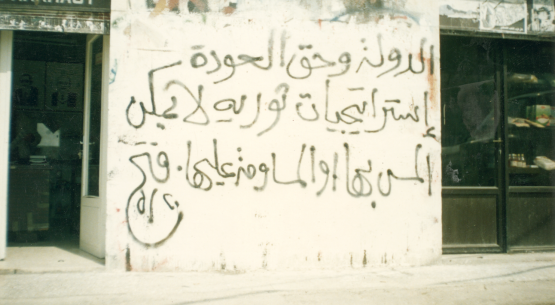 الدولة وحق العودة
إستراتيجيات ثوريه لا يمكن
المس بها او المساومة عليها. فتح